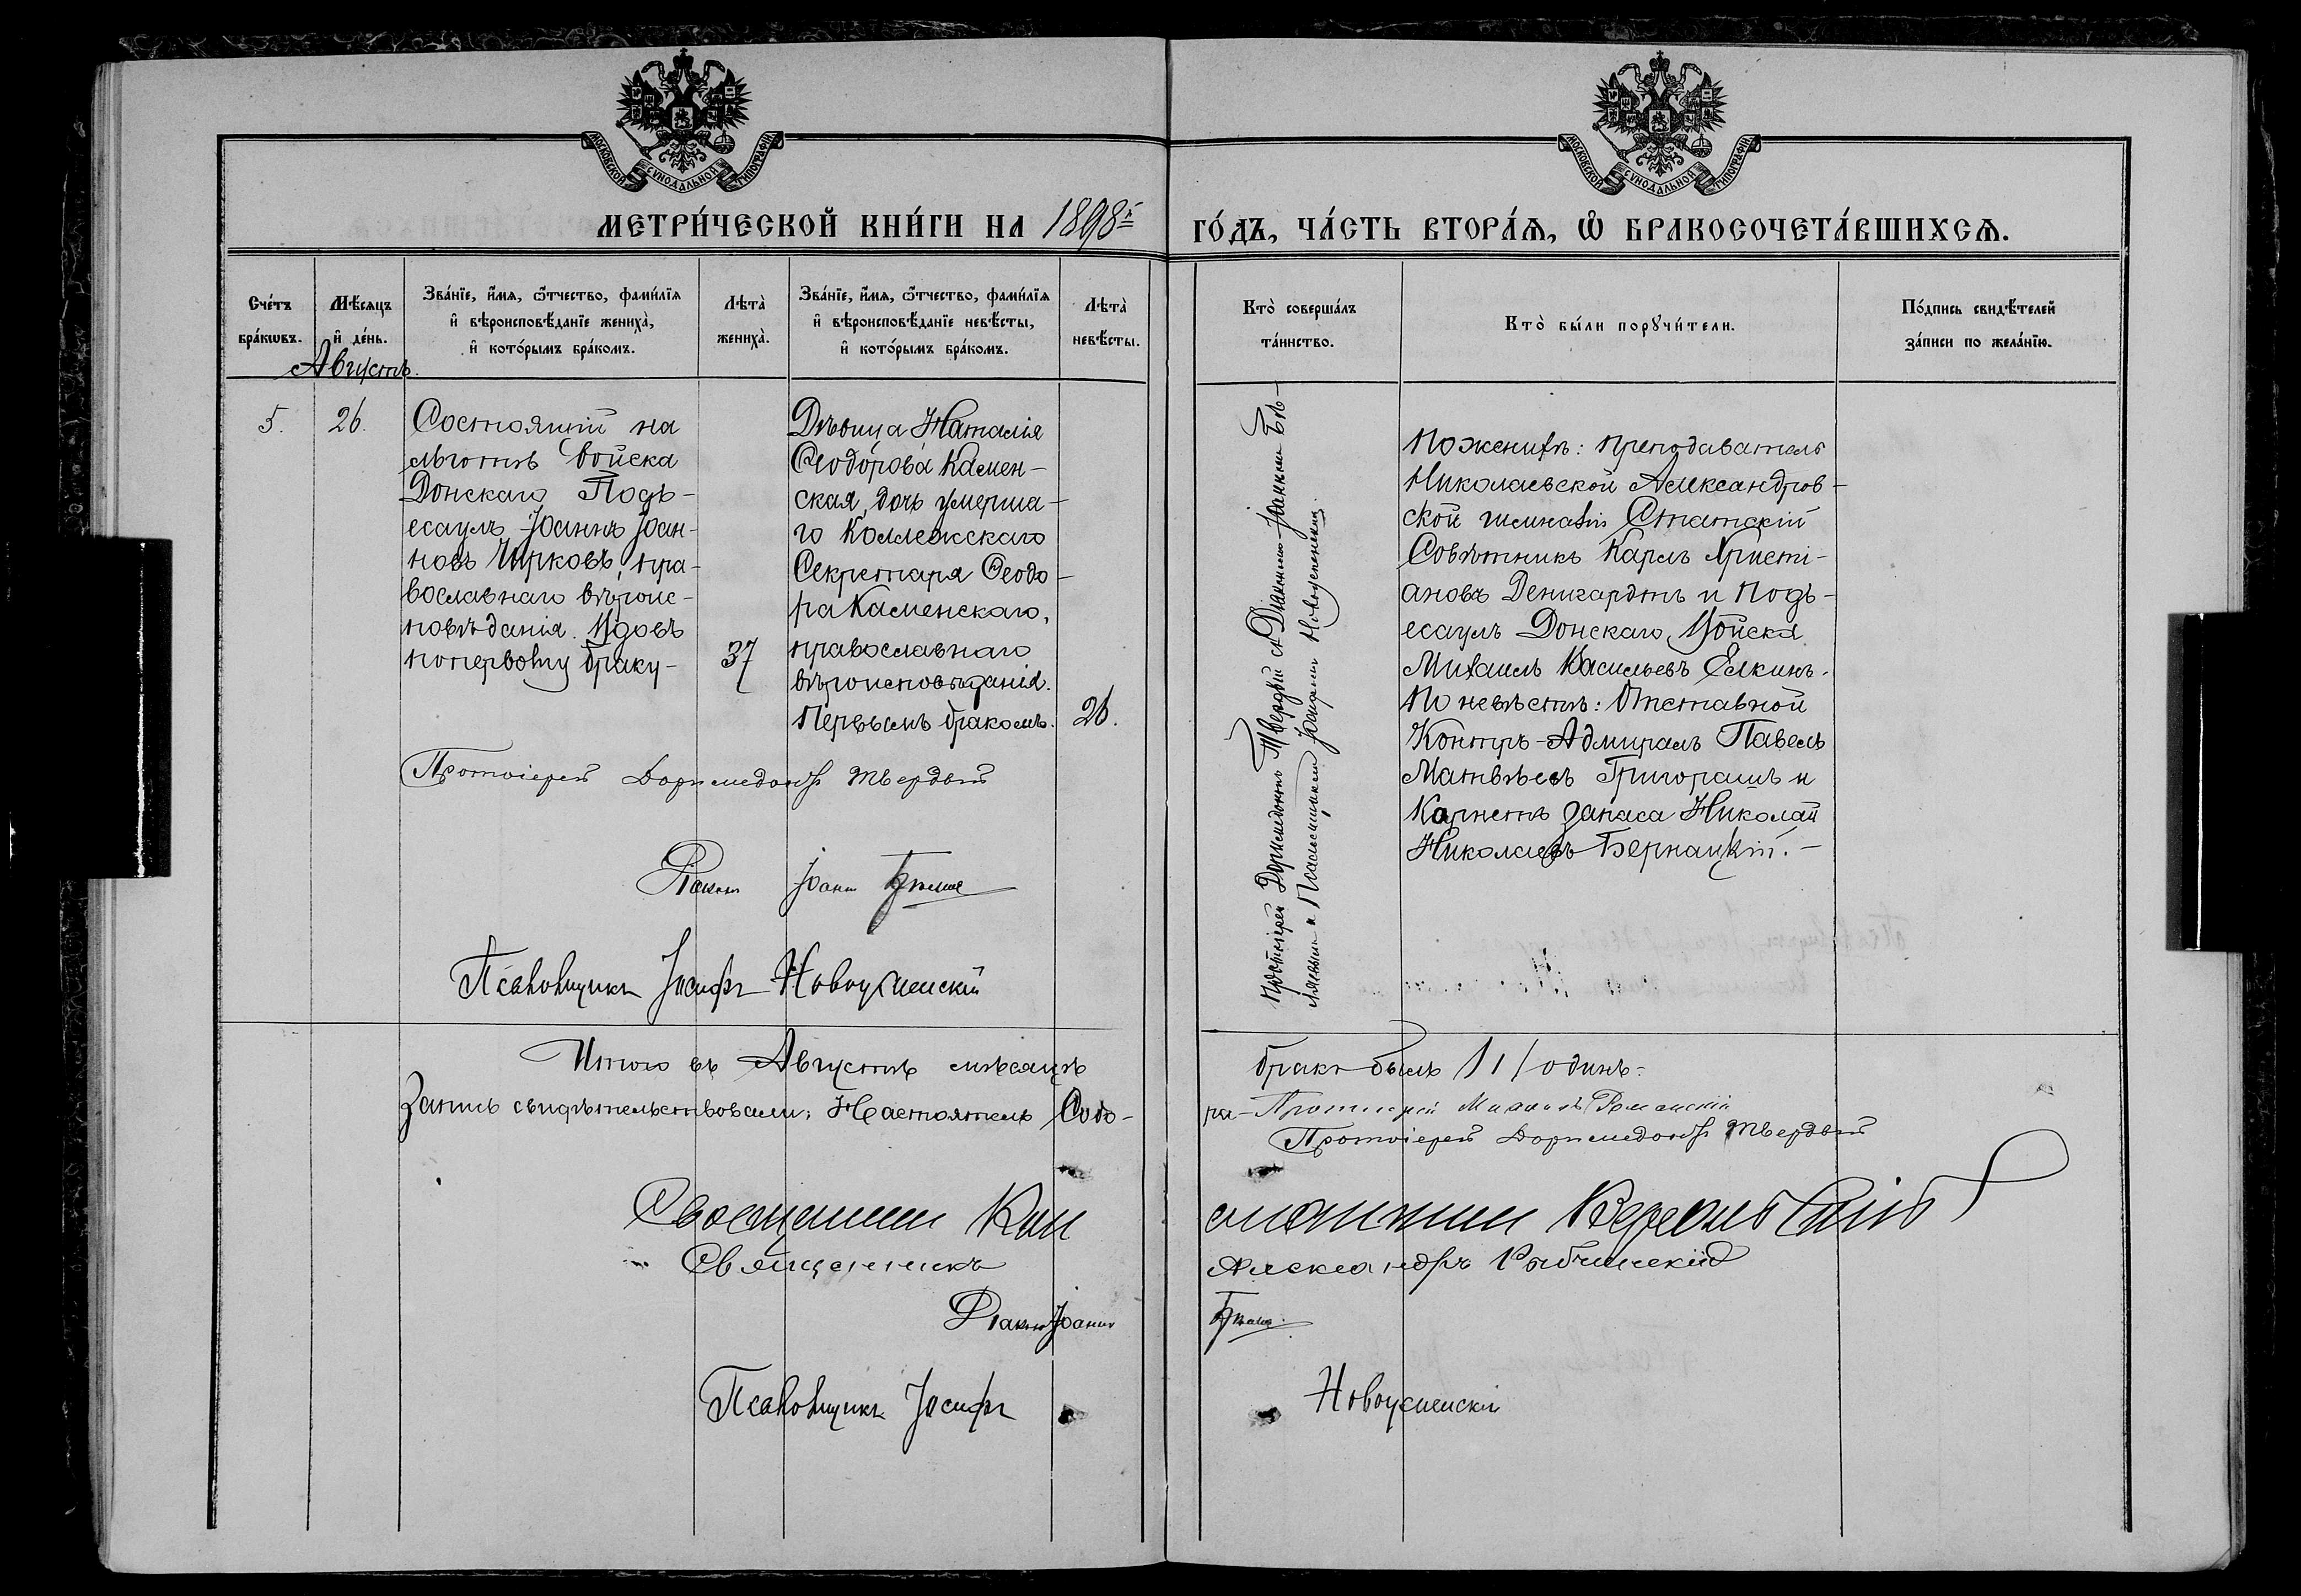 МОСКОВСКОЙ СѴНОДАЛЬНОЙ ТИПОГРАФІИ
МОСКОВСКОЙ СѴНОДАЛЬНОЙ ТИПОГРАФІИ
МЕТРИ́ЧЕСКОЙ КНИ́ГИ НА 1898й ГО́ДЪ, ЧА́СТЬ ВТОРА́Ѧ, Ѽ БРАКОСОЧЕТА́ВШИХСѦ.
Сче́тъ
бра́кѡвъ.
Мѣ́сяцъ
и҆ де́нь.
Зва́нїе, и҆́мѧ, ѻ҆́тчество, фами́лїѧ
и҆ вѣроисповѣ́данїе жениха̀,
и҆ кото́рымъ бра́комъ.
Лѣта̀
жениха̀.
Зва́нїе, и҆́мѧ, ѻ҆́тчество, фами́лїѧ
и҆ вѣроисповѣ́данїе невѣ́сты,
и҆ кото́рымъ бра́комъ.
Лѣта̀
невѣ́сты.
Кто̀ соверша́лъ
та́инство.
Кто̀ бы́ли порꙋчи́тели.
По́дпись свидѣ́телей
за́писи по жела́нїю.
Августъ.
5.
26.
Состоящій на
льготѣ Войска
Донскаго Подъ-
есаулъ Іоаннъ Іоан-
новъ Чирковъ, пра-
вославнаго вѣроис-
повѣданія. Вдовъ
по первому браку-
37
Дѣвица Наталія
Ѳеодорова Камен-
ская, дочь умерша-
го Коллежскаго
Секретаря Ѳеодо-
ра Каменскаго,
православнаго
вѣроисповѣданія.
Первымъ бракомъ.
26.
Протоіерей Дормедонтъ Твердый съ Діакономъ Іоанномъ Бѣ-
ляевымъ и Псаломщикомъ Іосифомъ Новоуспенскимъ.
По женихѣ: преподаватель
Николаевской Александров-
ской гимназіи Статскій
Совѣтникъ Карлъ Христі-
ановъ Денигардтъ и Подъ-
есаулъ Донскаго Войска
Михаилъ Васильевъ Елкинъ.
По невѣстѣ: Отставной
Контръ-Адмиралъ Павелъ
Матвѣевъ Григорашъ и
Корнетъ запаса Николай
Николаевъ Бернацкій.-
Протоіерей Дормедонтъ Твердый
Діаконъ Іоаннъ
Псаломщикъ Іосифъ Новоуспенскій
Итого въ Августѣ мѣсяцѣ бракъ былъ /1/ одинъ.
Запись свидѣтельствовали: Настоятель Собо-ра- Протоіерей Михаилъ
Протоіерей Дормедонтъ Твердый
Священникъ
Священникъ Александръ
Діаконъ Іоаннъ
Псаломщикъ Іосифъ Новоуспенскій